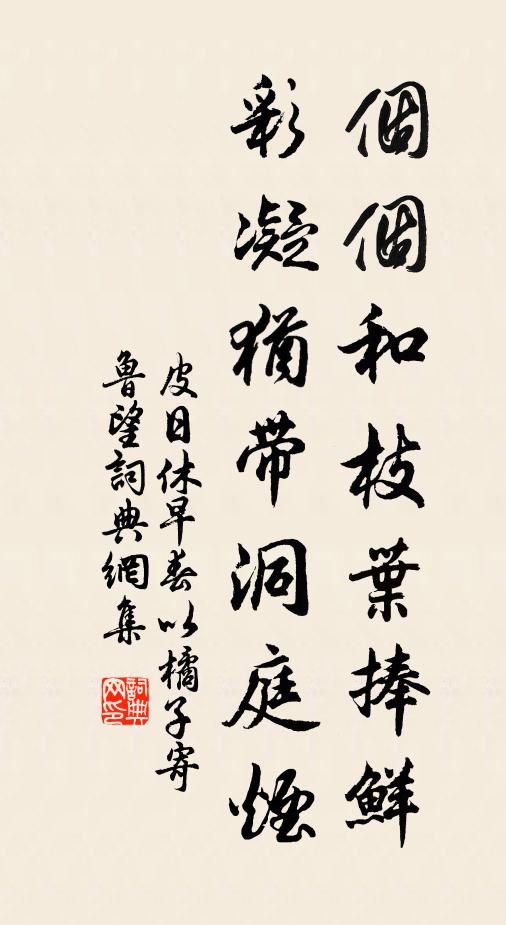 個個和枝葉捧鮮
彩凝猶帶洞庭煙
皮日休早春以橘子寄
魯望詞典網集
詞典
网印